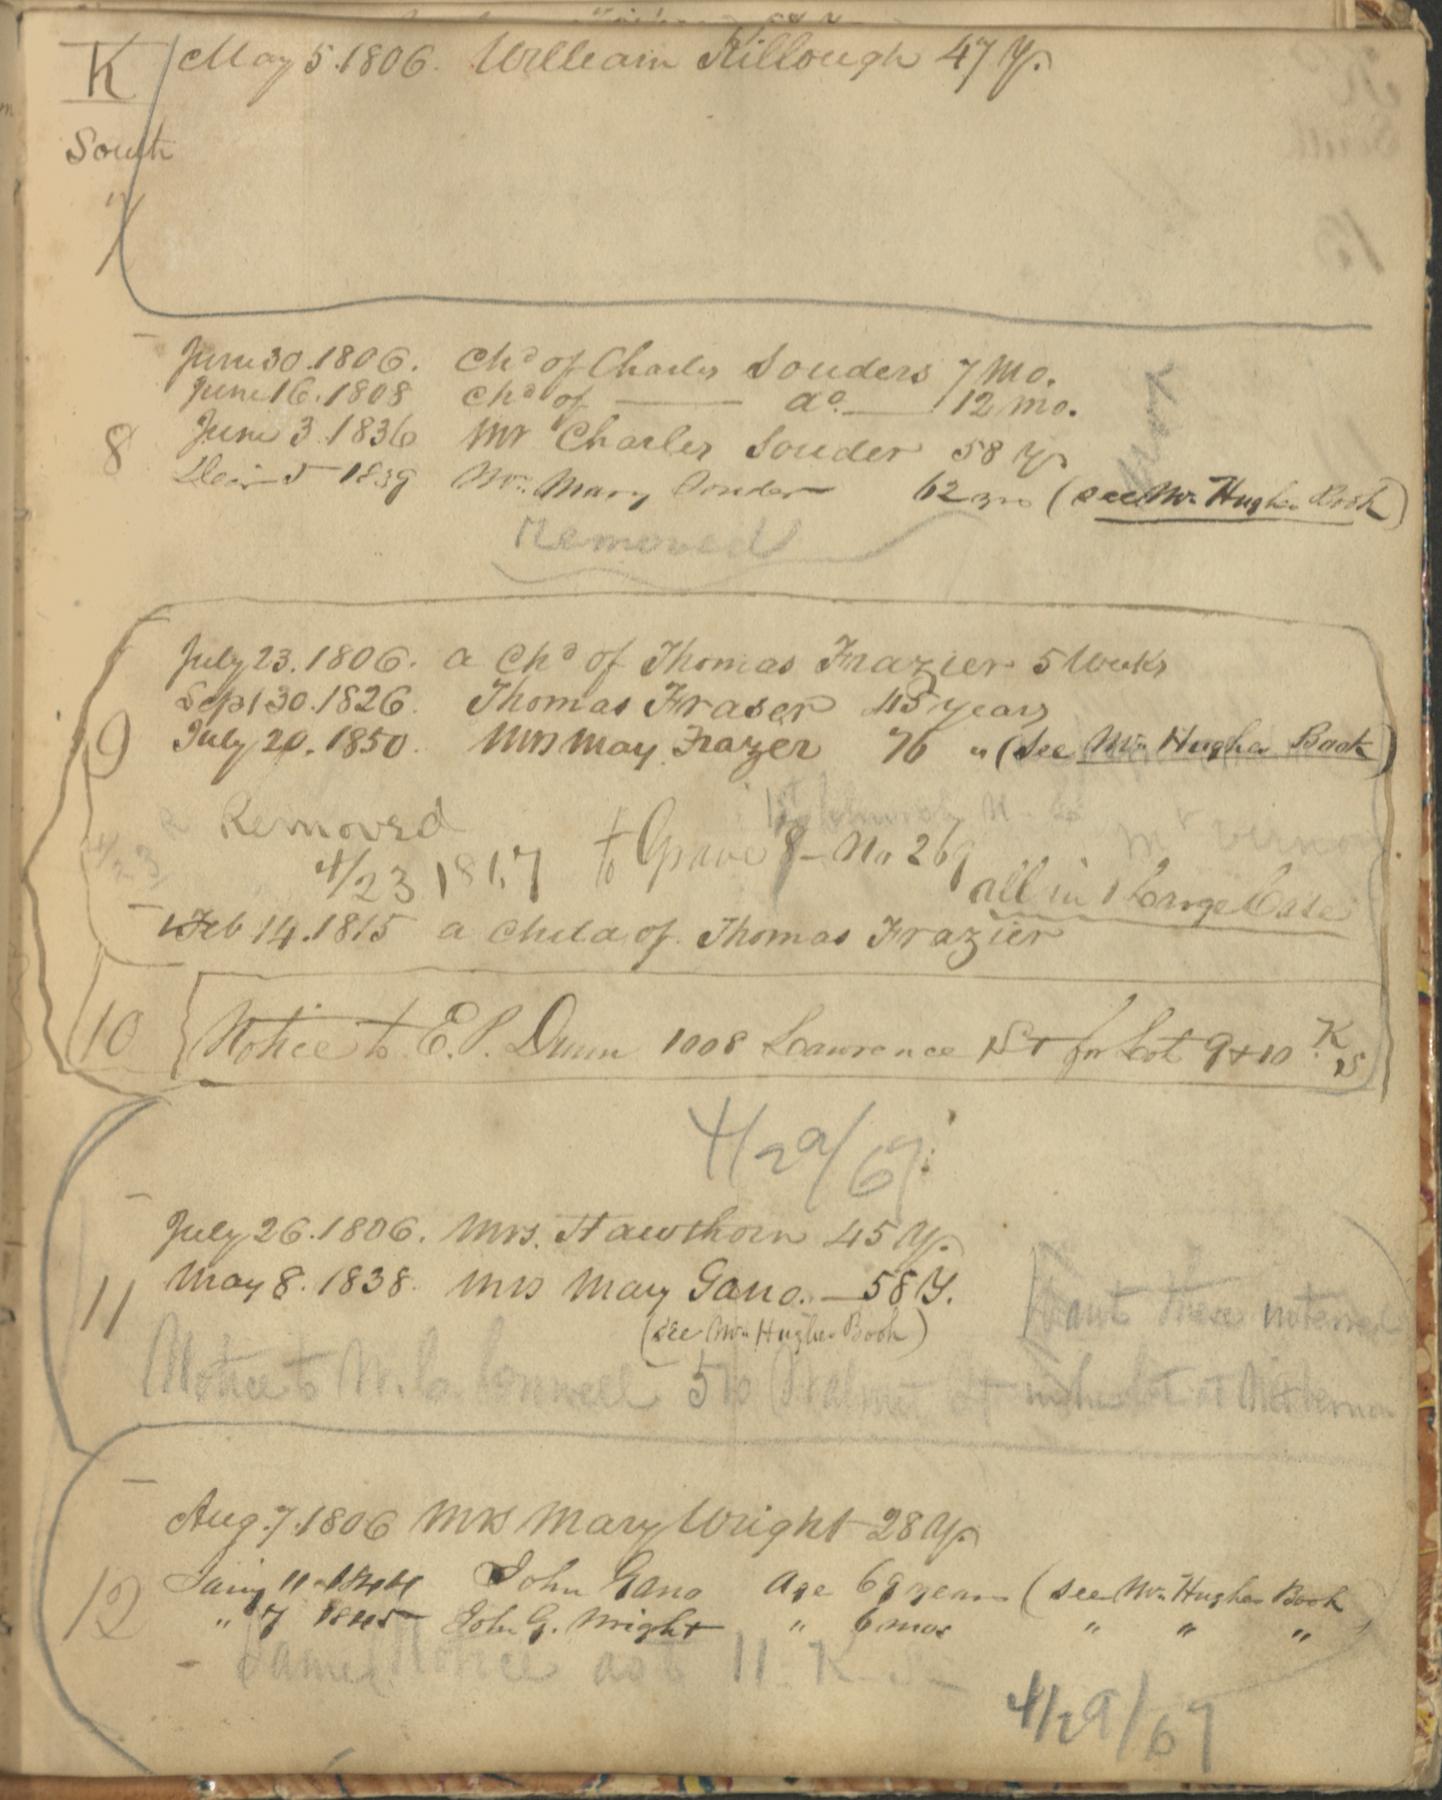 K May 5. 1806. William Killough 47 Y.
South
7
June 30. 1806. Chd of Charles Souders 7 Mo.
June 16. 1808 Chd of —— do. —— 12 mo.
8 June 3. 1836 Mr Charles Souder 58 Y
5 1839 Mrs. Mary Souder 62 (see Wm Hughes Book)
Removed
July 23. 1806. a Chd of Thomas Frazier 5 Weeks
Sept 30. 1826. Thomas Fraser 45 years
9 July 20. 1850. Mrs May Frazer 76 " (see Wm Hughes Book)
Removed
4/23 to Grave 8 - No 267
Mt Vernon
all in 1 Large Case
4/23
Feb 14. 1815 a child of Thomas Frazier
10 Notice to E. P. Dunn 1008 Lawrence St for Lot 9 + 10 K. S
4/29/67
July 26. 1806. Mrs. Hawthorn 45 Y.
11 May 8. 1838. Mrs May Gano. — 58 Y.
(see Wm Hughes Book)
Want these interred
Notice to W. C. 510 Walnut St in his lot at Mt Vernon
Aug. 7. 1806 Mrs Mary Wright 28 Y.
12 11 1844 John Gano Age 69 years (see Wm Hughes Book
" 7 1845 John G. Wright " 6 mos " " "
- Same Notice as to 11. K. S -
4/29/67